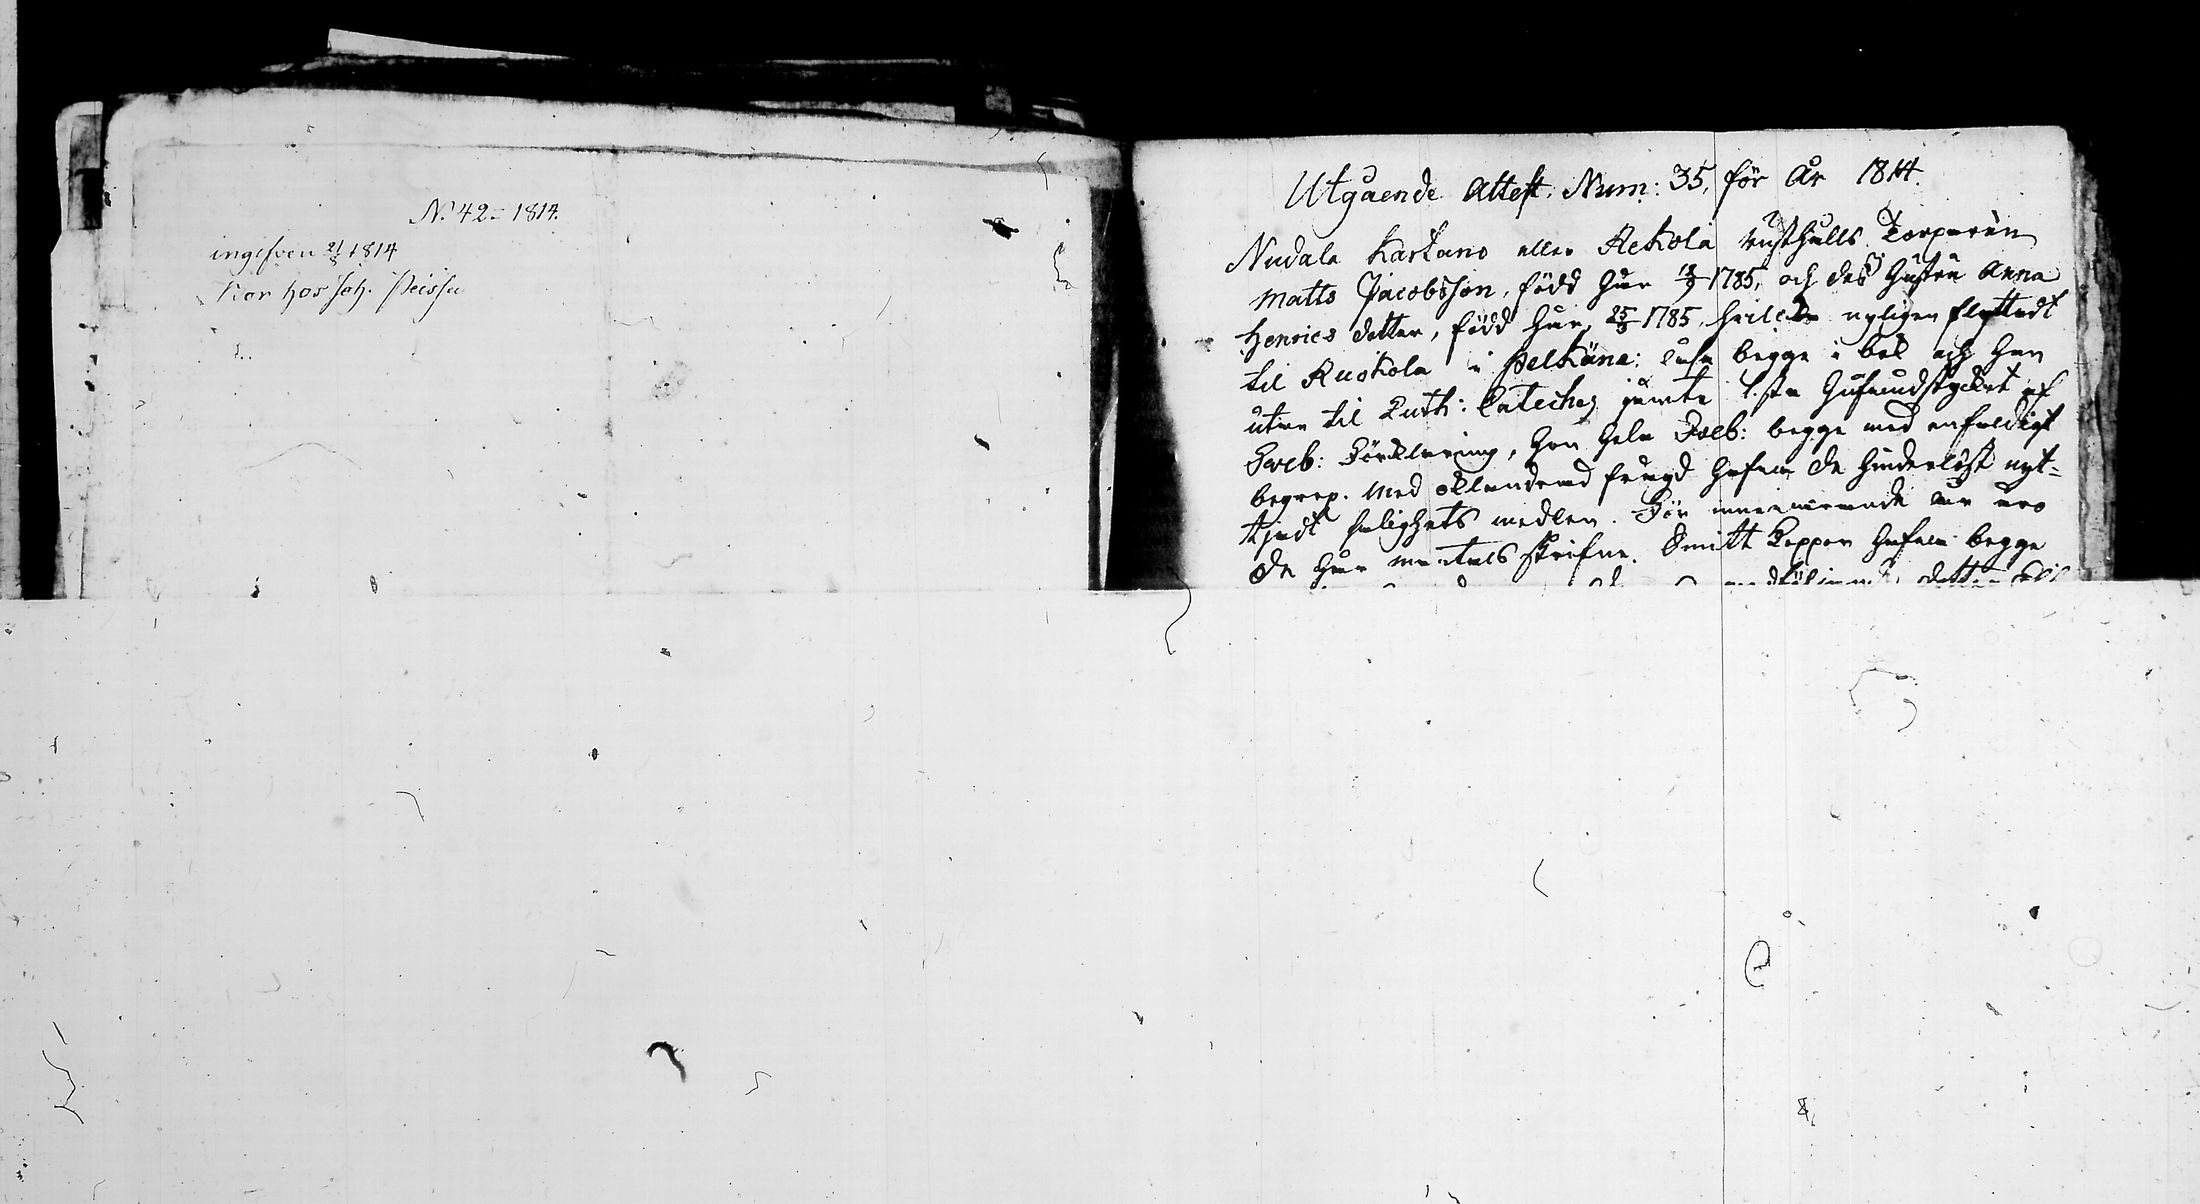 N. 42 - 1814.
ingifven 21/8 1814
Bor hos Joh.
Utgående Attest. Num: 35, för År 1814.
Nudala Kartano eller Rekola Rusthålls Torparen
Matts Jacobsson, född här 18/9 1785, och dess hustru Anna
Henrics dotter, född här, 25/3 1785, hvilcka nyligen flyttadt
til Ruokola i Pelkäne: läsa begge i bok och han
utan til Luth: Catechez jemte 1:sta hufvudstycket af
Sveb: Förklaring, hon hela Sveb: begge med enfaldigt
begrep. Med oklandrad frägd hafva de hinderlöst nyt-
tjadt salighets medlen. För innevarande år äro
de här mantals skrifne. Smitt Koppor hafva begge